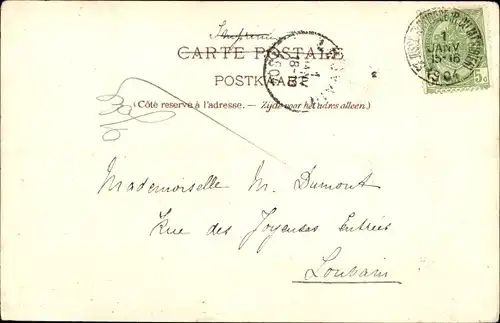 Imprimé
CARTE POSTALE
POSTKAART
(Côté reservé à l'adresse. – Zijde voor het adres alleen.)
1
JANV
15-16
1904
5c
Mademoiselle M. Dumont
Rue des Joyeuses Entrées
Louvain